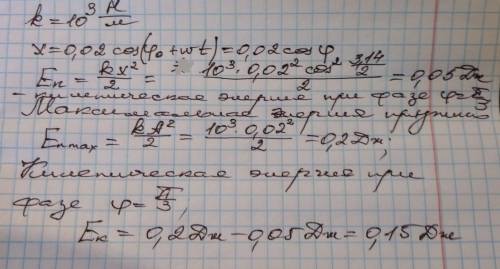 k = 10³ Н/м
x = 0,02 cos(φ₀ + ωt) = 0,02 cos φ
Eп = kx²/2 = 10³ · 0,02² cos² 3,14/2 / 2 = 0,05 Дж
– кинетическая энергия при фазе φ = π/3
Максимальная энергия пружины
Eп max = kA²/2 = 10³ · 0,02²/2 = 0,2 Дж;
Кинетическая энергия при
фазе φ = π/3;
Eк = 0,2 Дж – 0,05 Дж = 0,15 Дж